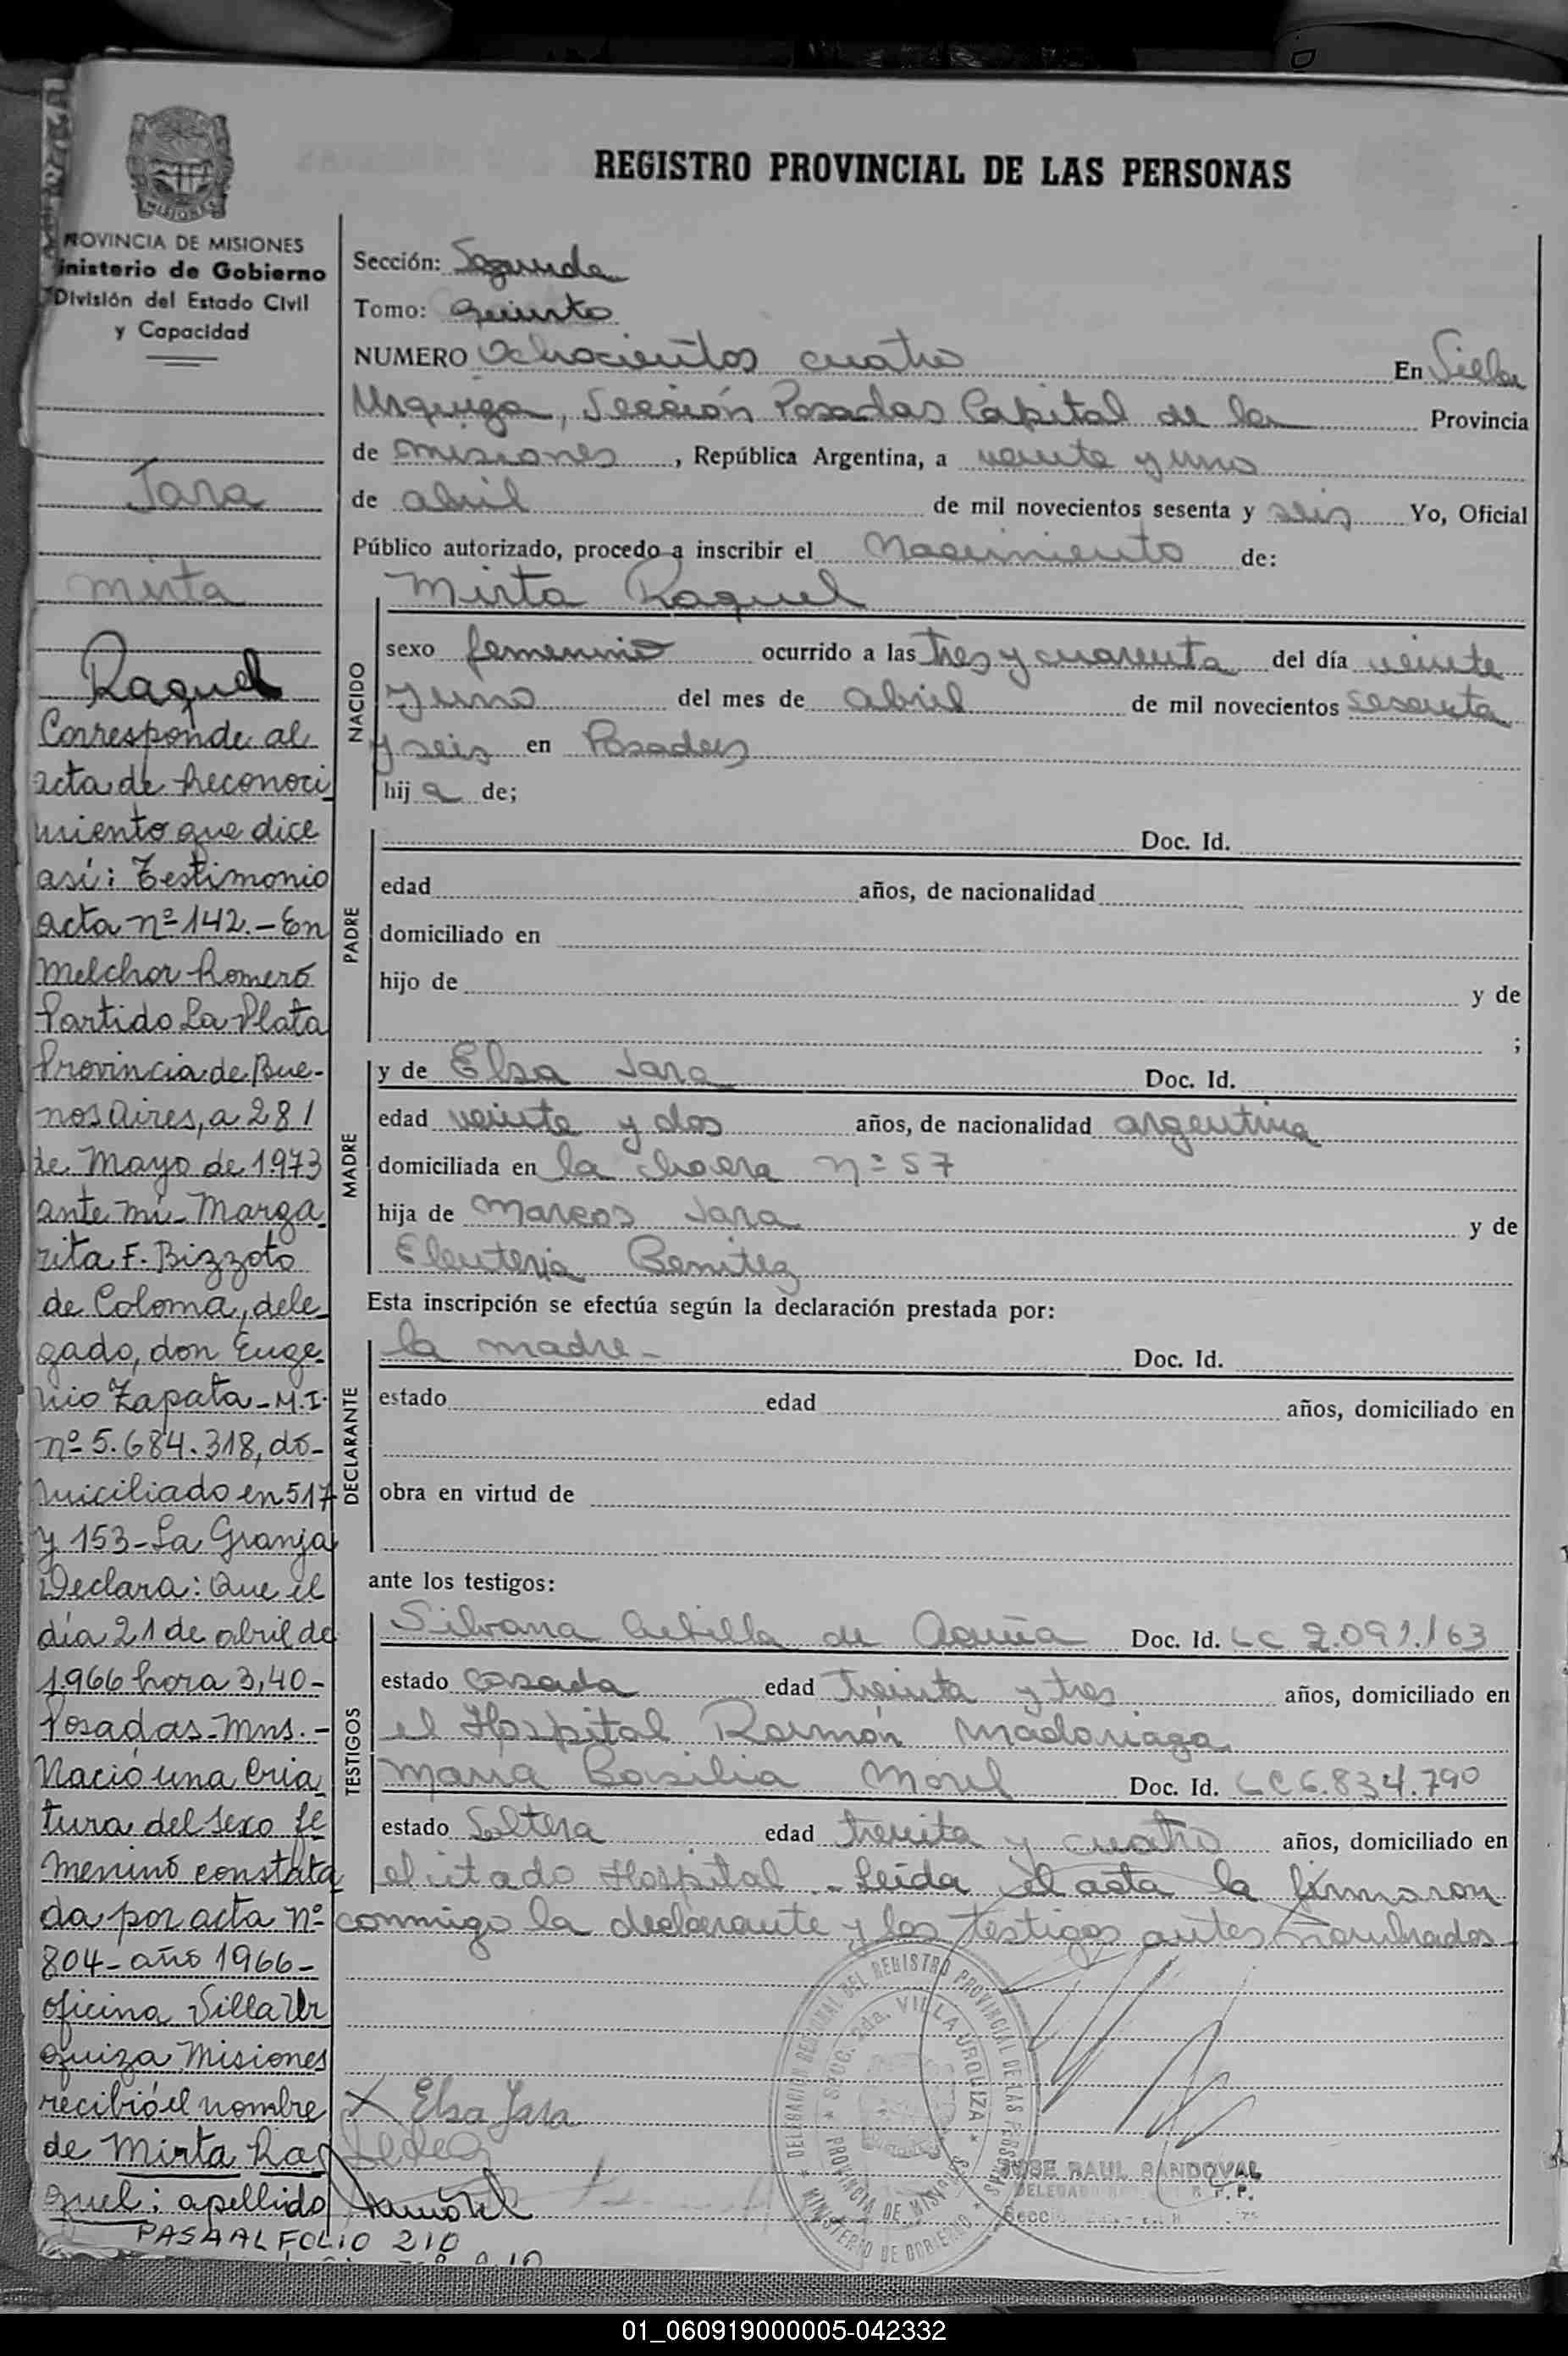 REGISTRO PROVINCIAL DE LAS PERSONAS
MISIONES
PROVINCIA DE MISIONES
Ministerio de Gobierno
División del Estado Civil
y Capacidad
Jara
Mirta
Raquel
Corresponde al
acta de reconoci
miento que dice
así: Testimonio
acta nº 142.- En
Melchor Romero
Partido La Plata
Provincia de Bue-
nos Aires, a 28 /
de Mayo de 1973
ante mi- Marga
rita F. Bizzoto
de Coloma, dele
gado, don Euge
nio Zapata - M.I.
nº 5.684.318, do-
miciliado en 517
y 153 - La Granja
Declara: Que el
día 21 de abril de
1966 hora 3,40 -
Posadas - Mns. -
Nació una Cria
tura del sexo fe
menino constata
da por acta nº
804 - año 1966 -
oficina Villa Ur
quiza Misiones
recibió el nombre
de Mirta Ra
quel; apellido
PASA AL FOLIO 210
Sección: Segunda
Tomo: Quinto
NUMERO Ochocientos cuatro En Villa
Urquiza, Sección Posadas Capital de la Provincia
de Misiones, República Argentina, a veinte y uno
de abril de mil novecientos sesenta y seis Yo, Oficial
Público autorizado, procedo a inscribir el Nacimiento de:
NACIDO
Mirta Raquel
sexo femenino ocurrido a las tres y cuarenta del día veinte
y uno del mes de abril de mil novecientos sesenta
y seis en Posadas
hij a de;
PADRE
Doc. Id.
edad años, de nacionalidad
domiciliado en
hijo de y de
;
MADRE
y de Elsa Jara Doc. Id.
edad veinte y dos años, de nacionalidad argentina
domiciliada en la chacra nº 57
hija de Marcos Jara y de
Eleuteria Benitez
Esta inscripción se efectúa según la declaración prestada por:
DECLARANTE
la madre - Doc. Id.
estado edad años, domiciliado en
obra en virtud de
ante los testigos:
TESTIGOS
Silvana de Acuña Doc. Id. LC 2.091.163
estado casada edad treinta y tres años, domiciliado en
el Hospital Ramón Madariaga
Maria Basilia Morel Doc. Id. LC 6.834.790
estado Soltera edad treinta y cuatro años, domiciliado en
el citado Hospital. - Leída el acta la firmaron
conmigo la declarante y los testigos antes nombrados
X Elsa Jara
DELEGACION REGIONAL DEL REGISTRO PROVINCIAL DE LAS PERSONAS
SECC. 2da. VILLA URQUIZA
PROVINCIA DE MISIONES
MINISTERIO DE GOBIERNO
JOSE RAUL SANDOVAL
01_060919000005-042332